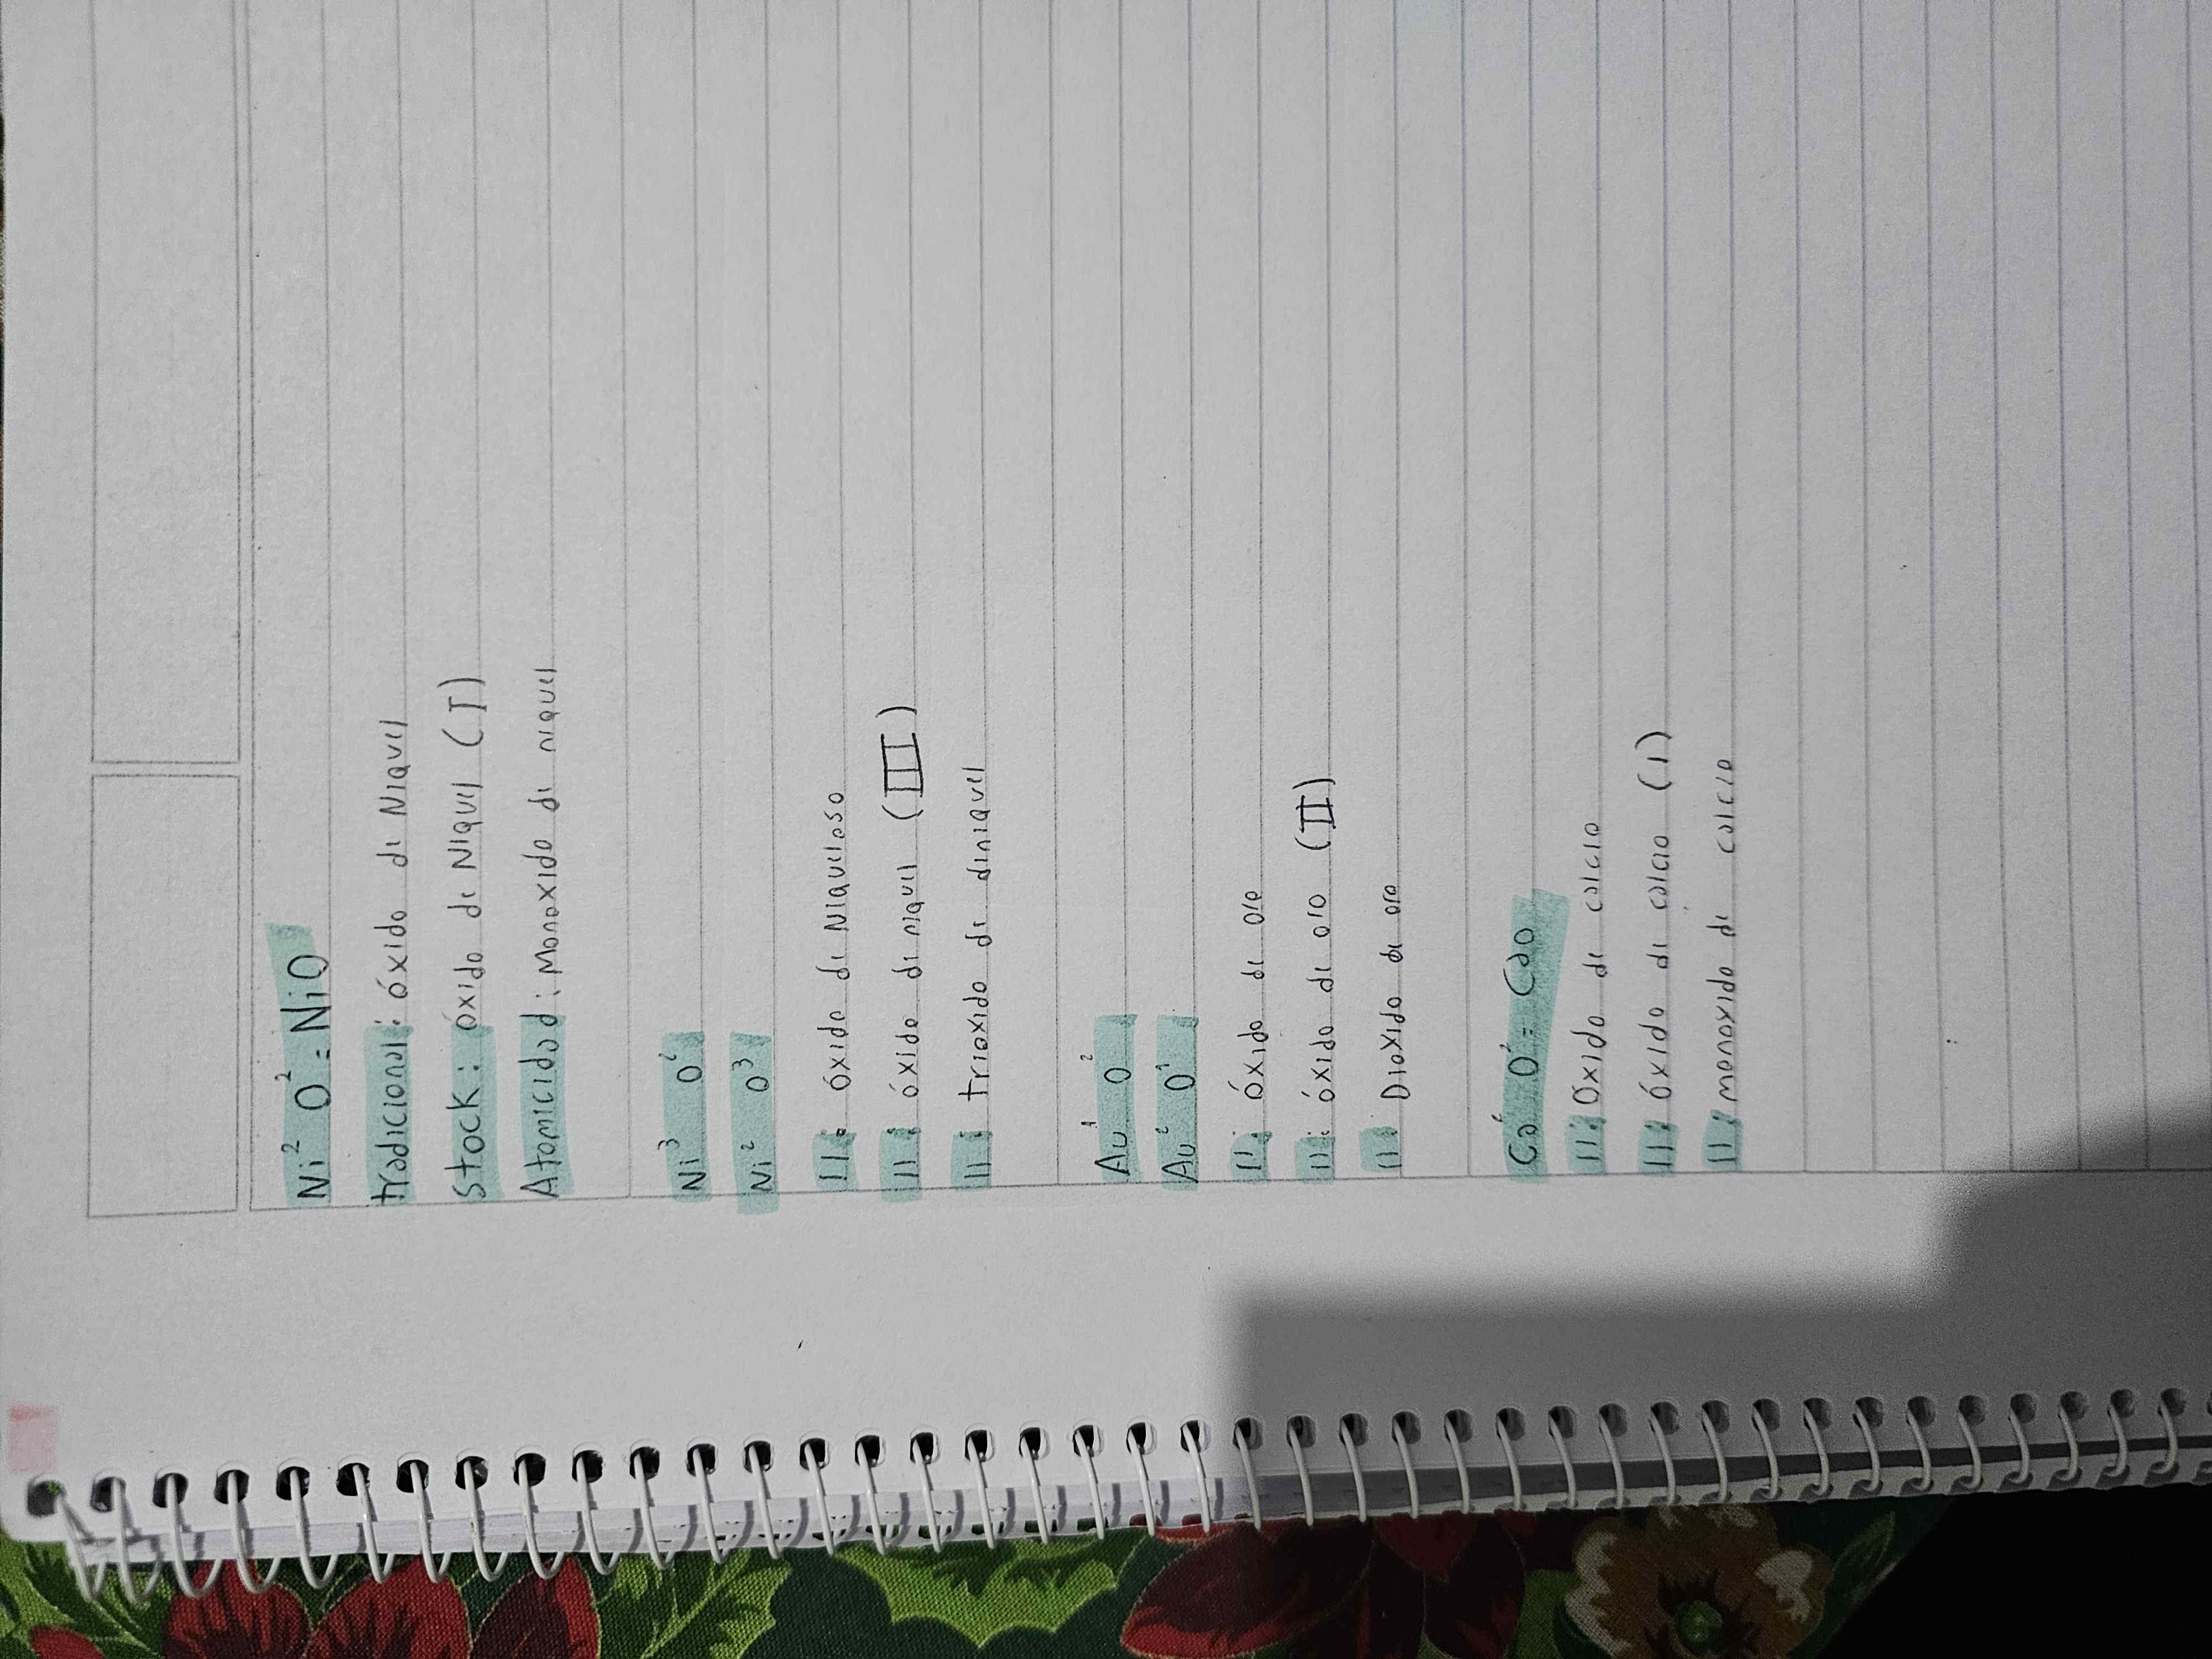 Ni² O² = NiO
tradicional: óxido de Niquel
Stock: óxido de Niquel (I)
Atomicidad: Monoxido de niquel
Ni³ O²
Ni² O³
11: óxido de Niqueloso
11: óxido de niquel (III)
11: trioxido de diniquel
Au¹ O²
Au² O¹
11: óxido de oro
11: óxido de oro (II)
11: Dioxido de oro
Ca² O² = CaO
11: Óxido de calcio
11: óxido de calcio (1)
11: monoxido de calcio